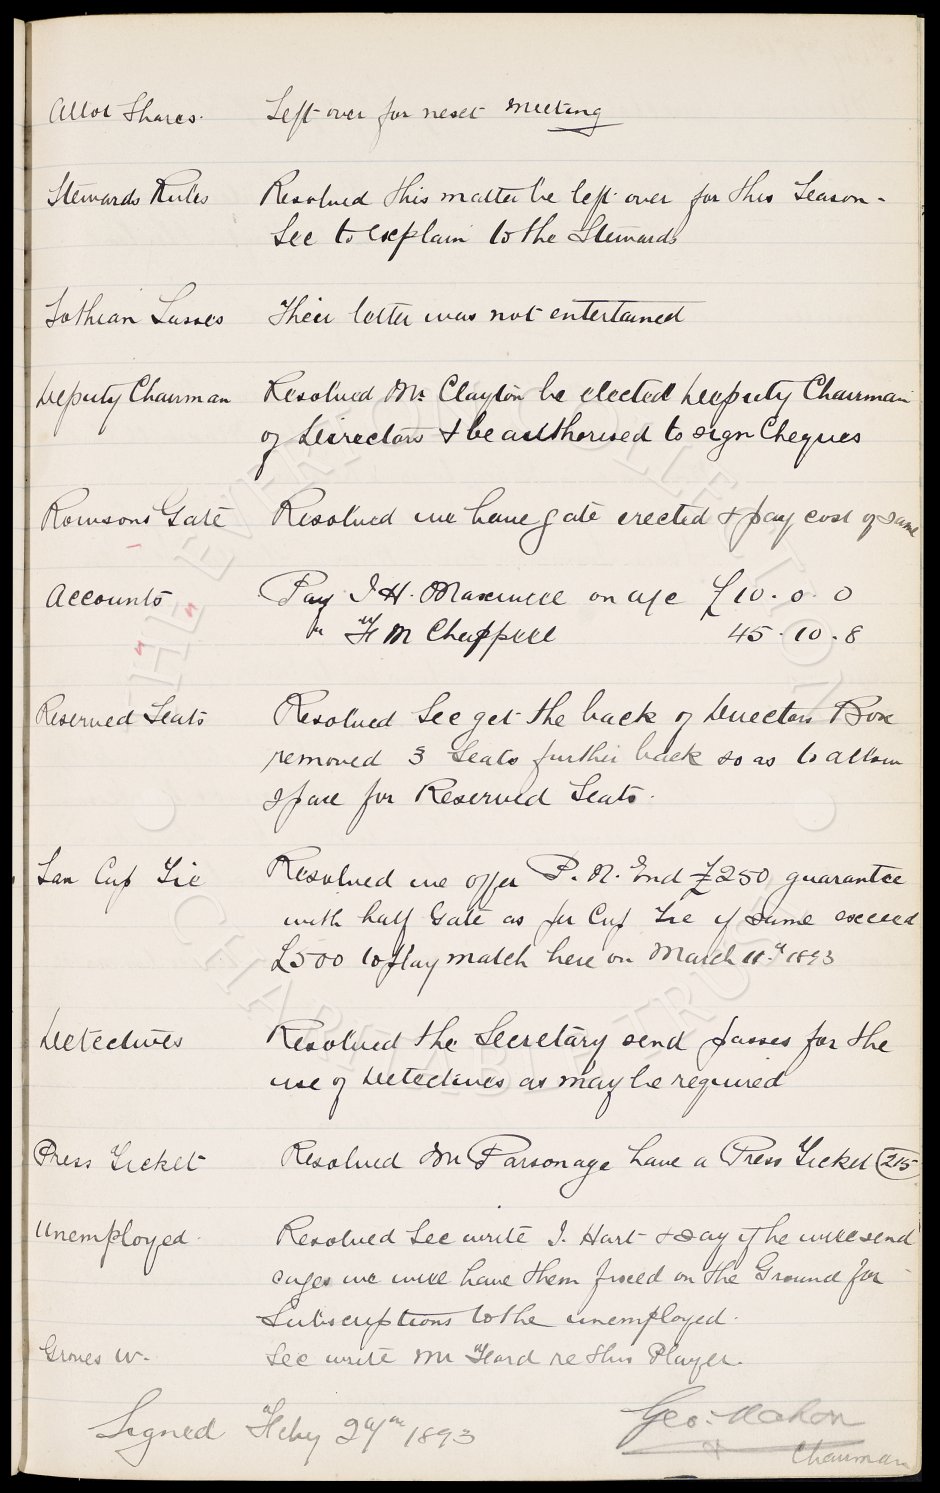 Allot Shares. Left over for next meeting
Stewards Rules Resolved this matter be left over for this Season -
Sec to explain to the Stewards
Lothian Lasses Their letter was not entertained
Deputy Chairman Resolved Mr Clayton be elected Deputy Chairman
of Directors & be authorised to sign Cheques
Rowsons Gate Resolved we have gate erected & pay cost of same
Accounts Pay J H. Maxwell on a/c £10. 0. 0
" F M Chappell 45. 10. 8
Reserved Seats Resolved Sec get the back of Directors Box
removed 3 Seats further back so as to allow
space for Reserved Seats.
Lan Cup Tie Resolved we offer P. N. End £250 guarantee
with half Gate as per Cup Tie if same exceed
£500 to play match here on March 11th 1893
Detectives Resolved the Secretary send passes for the
use of Detectives as may be required
Press Ticket Resolved Mr Parsonage have a Press Ticket 215
Unemployed. Resolved Sec write J. Hart & say if he will send
cages we will have them fixed on the Ground for
Subscriptions to the unemployed.
Groves W. Sec write Mr Ford re this Player.
Signed Feby 1893 Geo: Mahon
Chairman
THE EVERTON COLLECTION
CHARITABLE TRUST